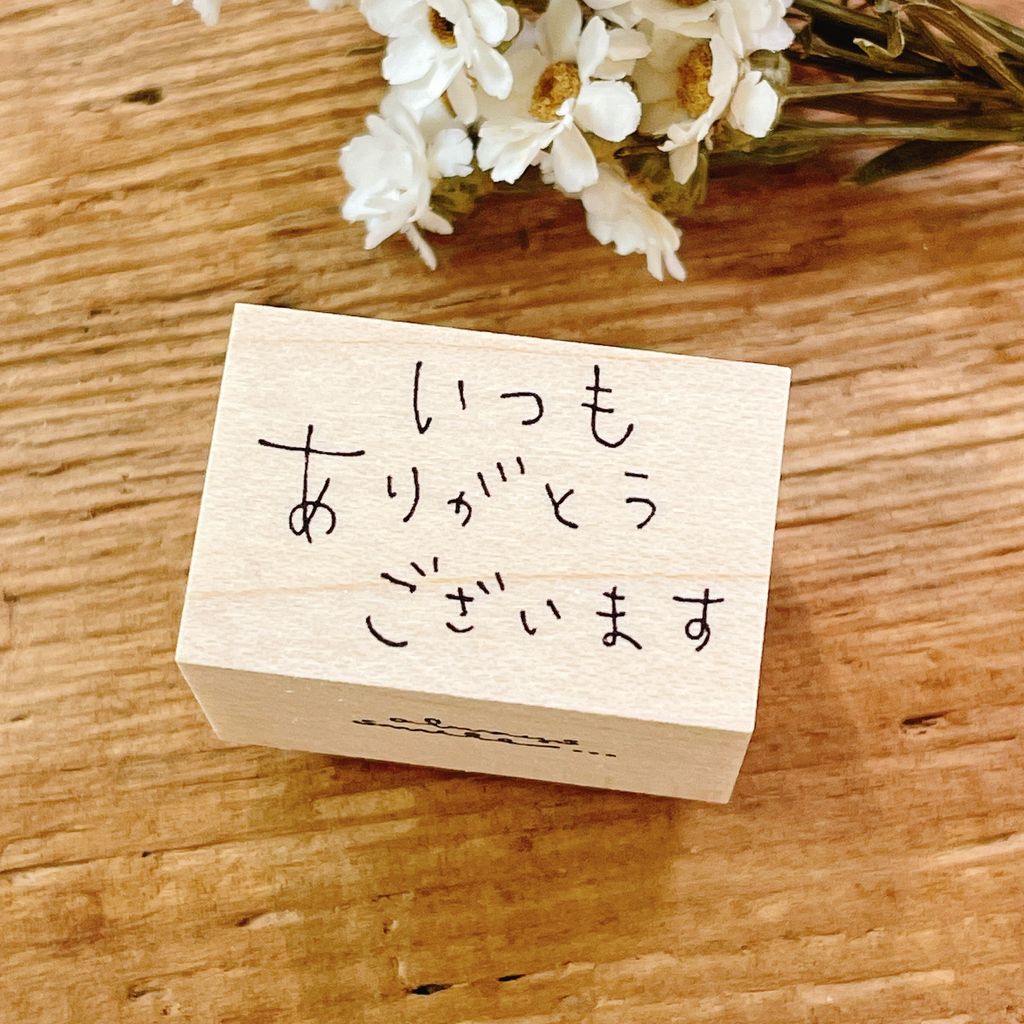 いつも
ありがとう
ございます
always
smile